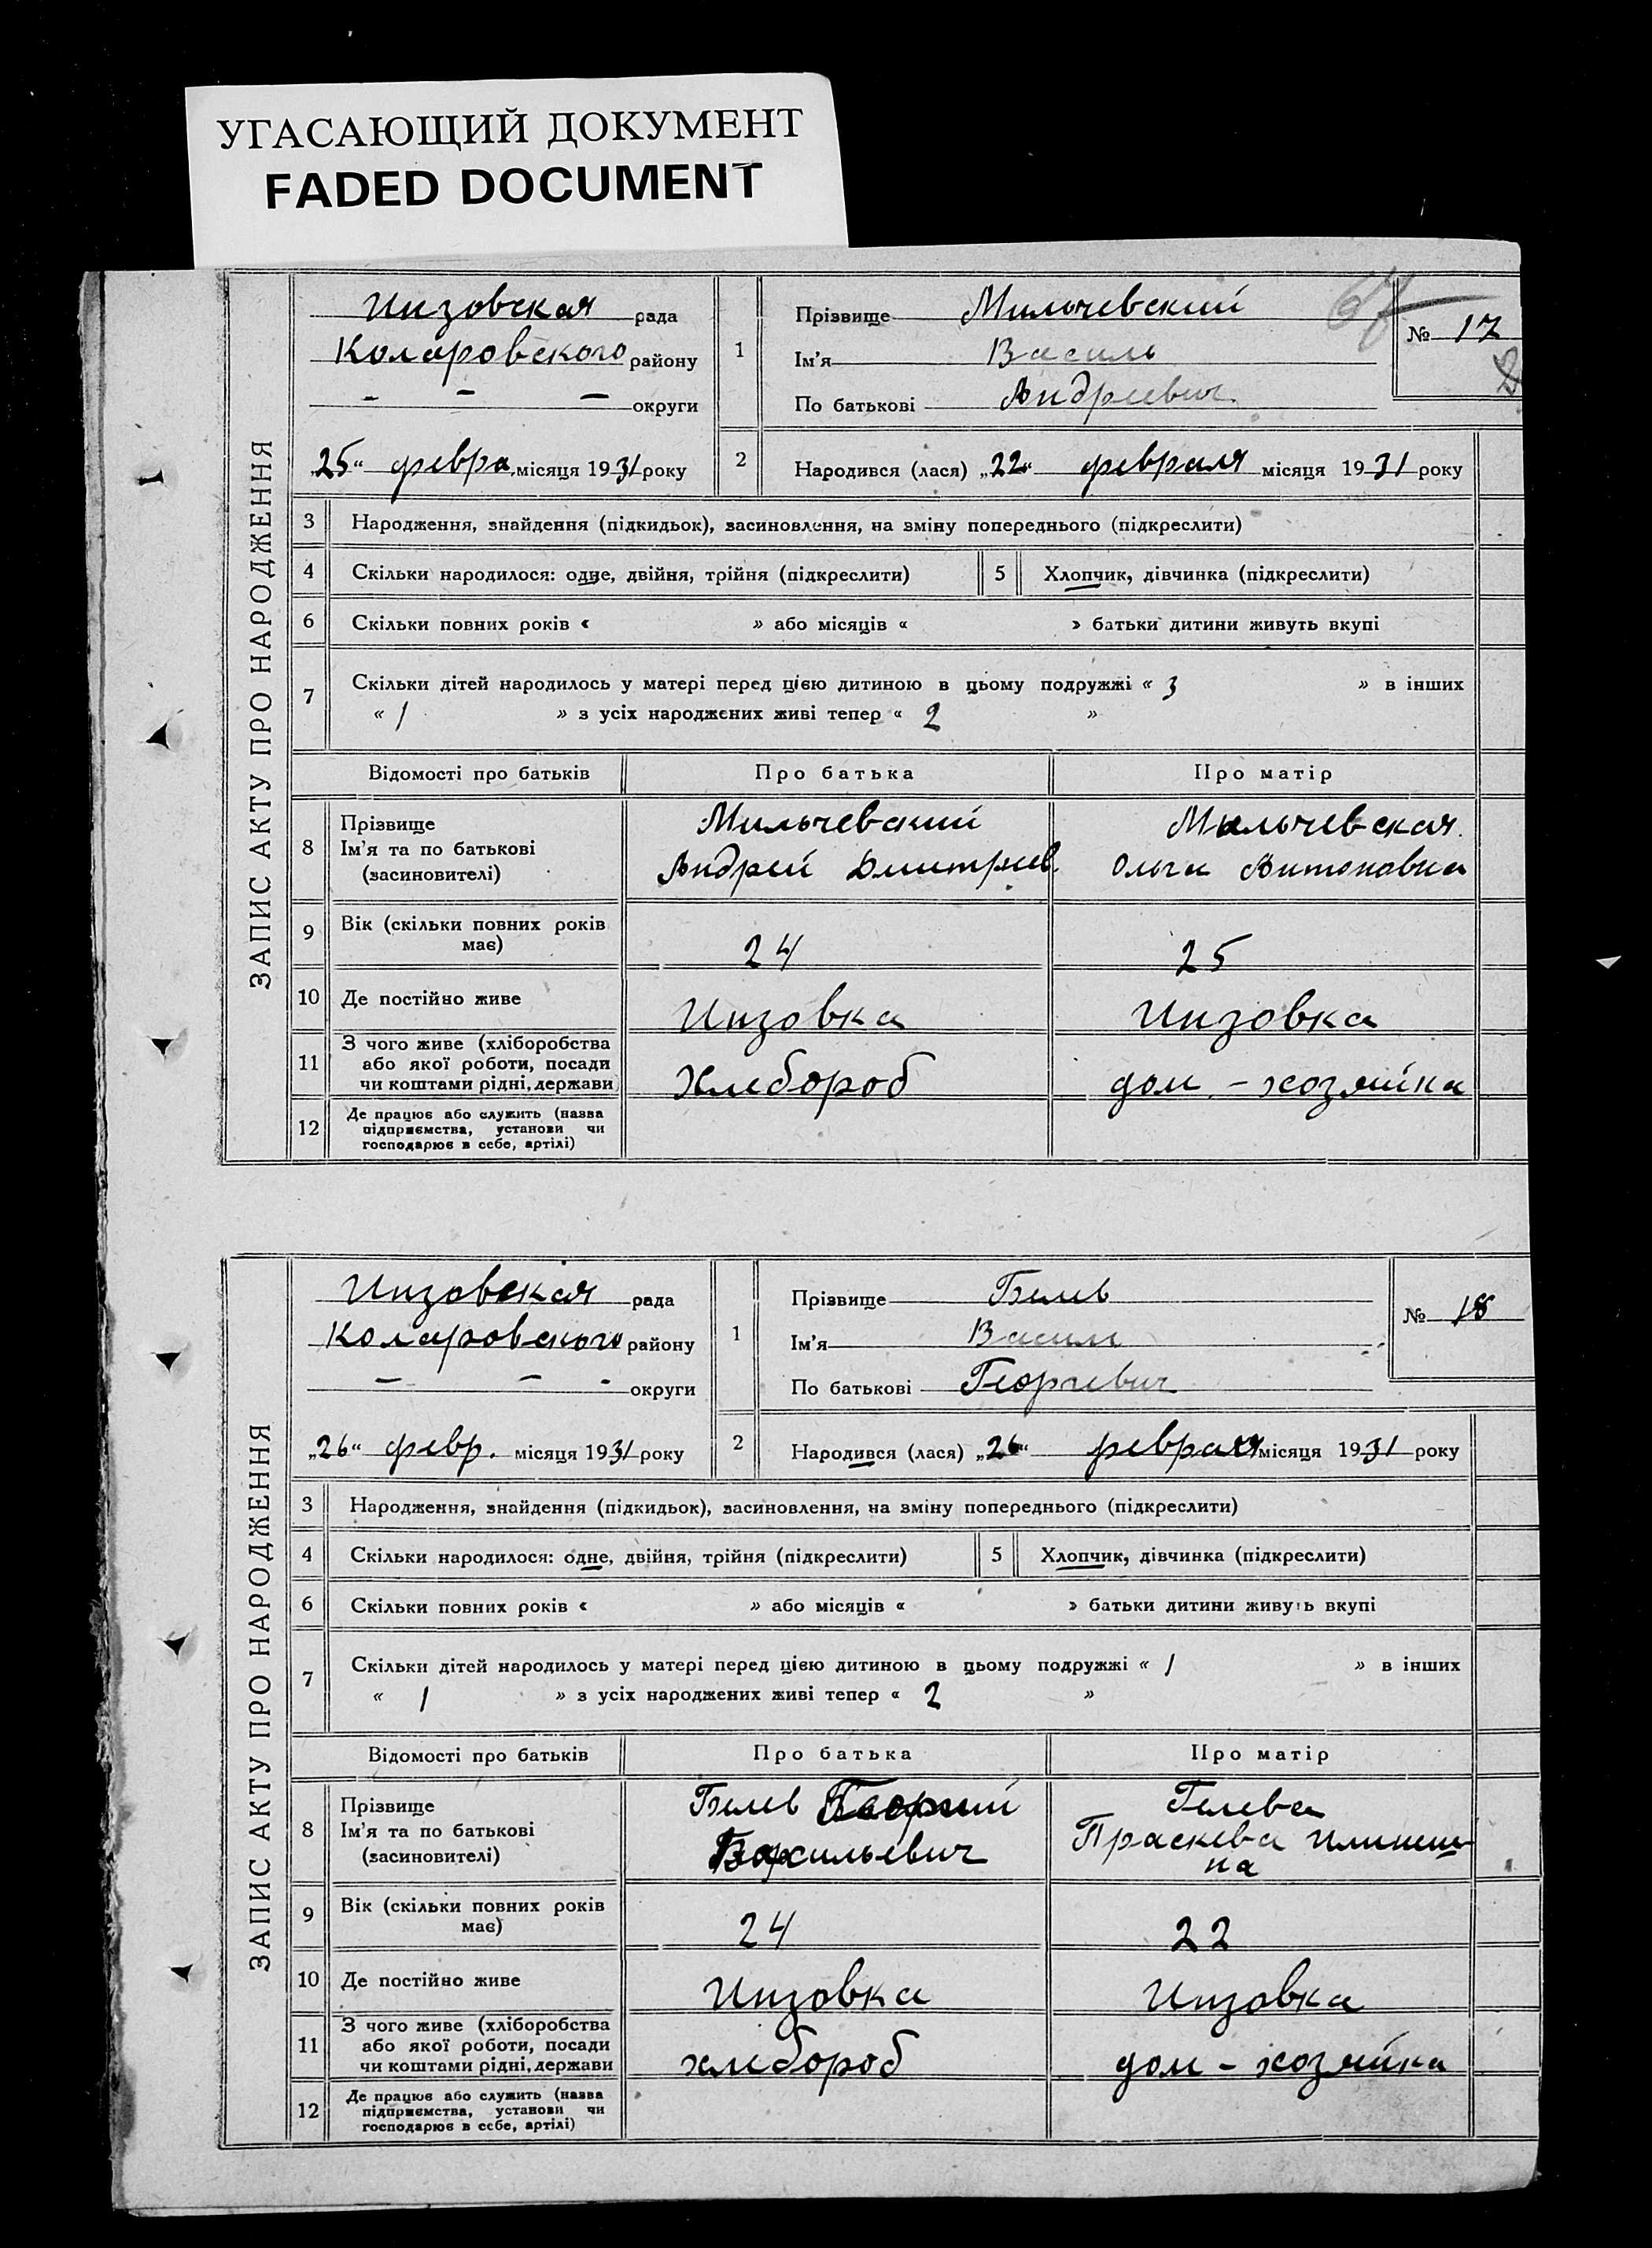 УГАСАЮЩИЙ ДОКУМЕНТ
FADED DOCUMENT
ЗАПИС АКТУ ПРО НАРОДЖЕННЯ
Инзовская рада
Коларовского району
- - - округи
„25“ февра. місяця 1931 року
1
Прізвище Мильчевский
Ім'я Василь
По батькові Андреевич
№ 17
2
Народився (лася) „22“ февраля місяця 1931 року
3 Народження, знайдення (підкидьок), засиновлення, на зміну попереднього (підкреслити)
4 Скільки народилося: одне, двійня, трійня (підкреслити) 5 Хлопчик, дівчинка (підкреслити)
6 Скільки повних років « » або місяців « » батьки дитини живуть вкупі
7 Скільки дітей народилось у матері перед цією дитиною в цьому подружжі « 3 » в інших
« 1 » з усіх народжених живі тепер « 2 »
Відомості про батьків Про батька Про матір
8 Прізвище Мильчевский Мильчевская
Ім'я та по батькові Андрей Дмитриев. Ольга Антоновна
(засиновителі)
9 Вік (скільки повних років має) 24 25
10 Де постійно живе Инзовка Инзовка
11 З чого живе (хліборобства
або якої роботи, посади
чи коштами рідні, держави) Хлебороб дом - хозяйка
12 Де працює або служить (назва
підприємства, установи чи
господарює в себе, артілі)
ЗАПИС АКТУ ПРО НАРОДЖЕННЯ
Инзовская рада
Коларовского району
- - - округи
„26“ февр. місяця 1931 року
1
Прізвище Белев
Ім'я Васили
По батькові Георгиевич
№ 18
2
Народився (лася) „26“ февраля місяця 1931 року
3 Народження, знайдення (підкидьок), засиновлення, на зміну попереднього (підкреслити)
4 Скільки народилося: одне, двійня, трійня (підкреслити) 5 Хлопчик, дівчинка (підкреслити)
6 Скільки повних років « » або місяців « » батьки дитини живуть вкупі
7 Скільки дітей народилось у матері перед цією дитиною в цьому подружжі « 1 » в інших
« 1 » з усіх народжених живі тепер « 2 »
Відомості про батьків Про батька Про матір
8 Прізвище Белев Георгий
Ім'я та по батькові Васильевич Праскева
(засиновителі)
9 Вік (скільки повних років має) 24 22
10 Де постійно живе Инзовка Инзовка
11 З чого живе (хліборобства
або якої роботи, посади
чи коштами рідні, держави хлебороб дом - хозяйка
12 Де працює або служить (назва
підприємства, установи чи
господарює в себе, артілі)